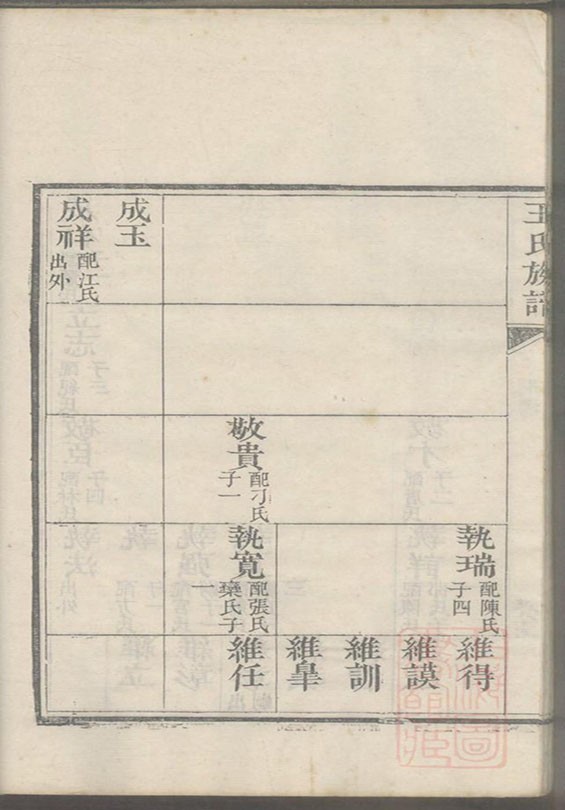 王氏族譜
執瑞 配陳氏
子四
維得
維謨
維訓
維臯
敬貴 配刁氏
子一
執寬 配張氏
欒氏子
一
維任
成玉
成祥 配江氏
出外